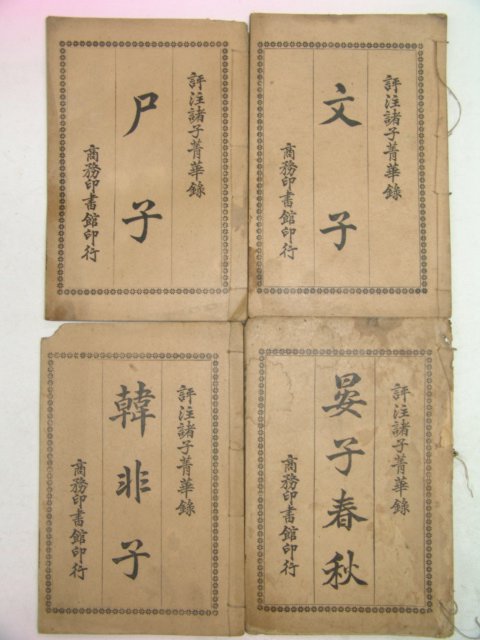 評注諸子菁華錄
尸子
商務印書館印行
評注諸子菁華錄
文子
商務印書館印行
評注諸子菁華錄
韓非子
商務印書館印行
評注諸子菁華錄
晏子春秋
商務印書館印行